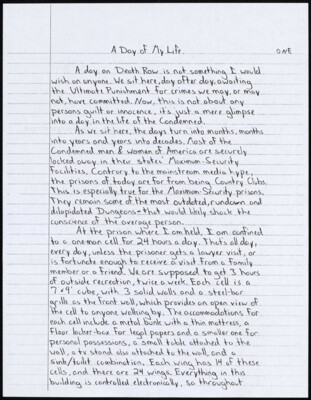 A Day of My Life.
ONE
A day on Death Row is not something I would
wish on anyone. We sit here, day after day, awaiting
the Ultimate Punishment for crimes we may, or may
not, have committed. Now, this is not about any
persons guilt or innocence, it's just a mere glimpse
into a day in the life of the Condemned.
As we sit here, the days turn into months, months
into years and years into decades. Most of the
Condemned men & women of America are securely
locked away in their states' Maximum-Security
Facilities. Contrary to the mainstream media hype,
the prisons of today are far from being Country Clubs.
This is especially true for the Maximum-Security prisons.
They remain some of the most outdated, rundown and
dilapidated Dungeons - that would likely shock the
conscience of the average person.
At the prison where I am held, I am confined
to a one man cell for 24 hours a day. Thats all day,
every day, unless the prisoner gets a lawyer visit, or
is fortunate enough to receive a visit from a family
member or a friend. We are supposed to get 3 hours
of outside recreation, twice a week. Each cell is a
7'x9' cube, with 3 solid walls and a steel-bar
grill as the front wall, which provides an open view of
the cell to anyone walking by. The accommodations for
each cell include a metal bunk with a thin mattress, a
floor locker-box for legal papers and a smaller one for
personal possessions, a small table attached to the
wall, a tv stand also attached to the wall, and a
sink/toilet combination. Each wing has 14 of these
cells, and there are 24 wings. Everything in this
building is controlled electronically, so throughout